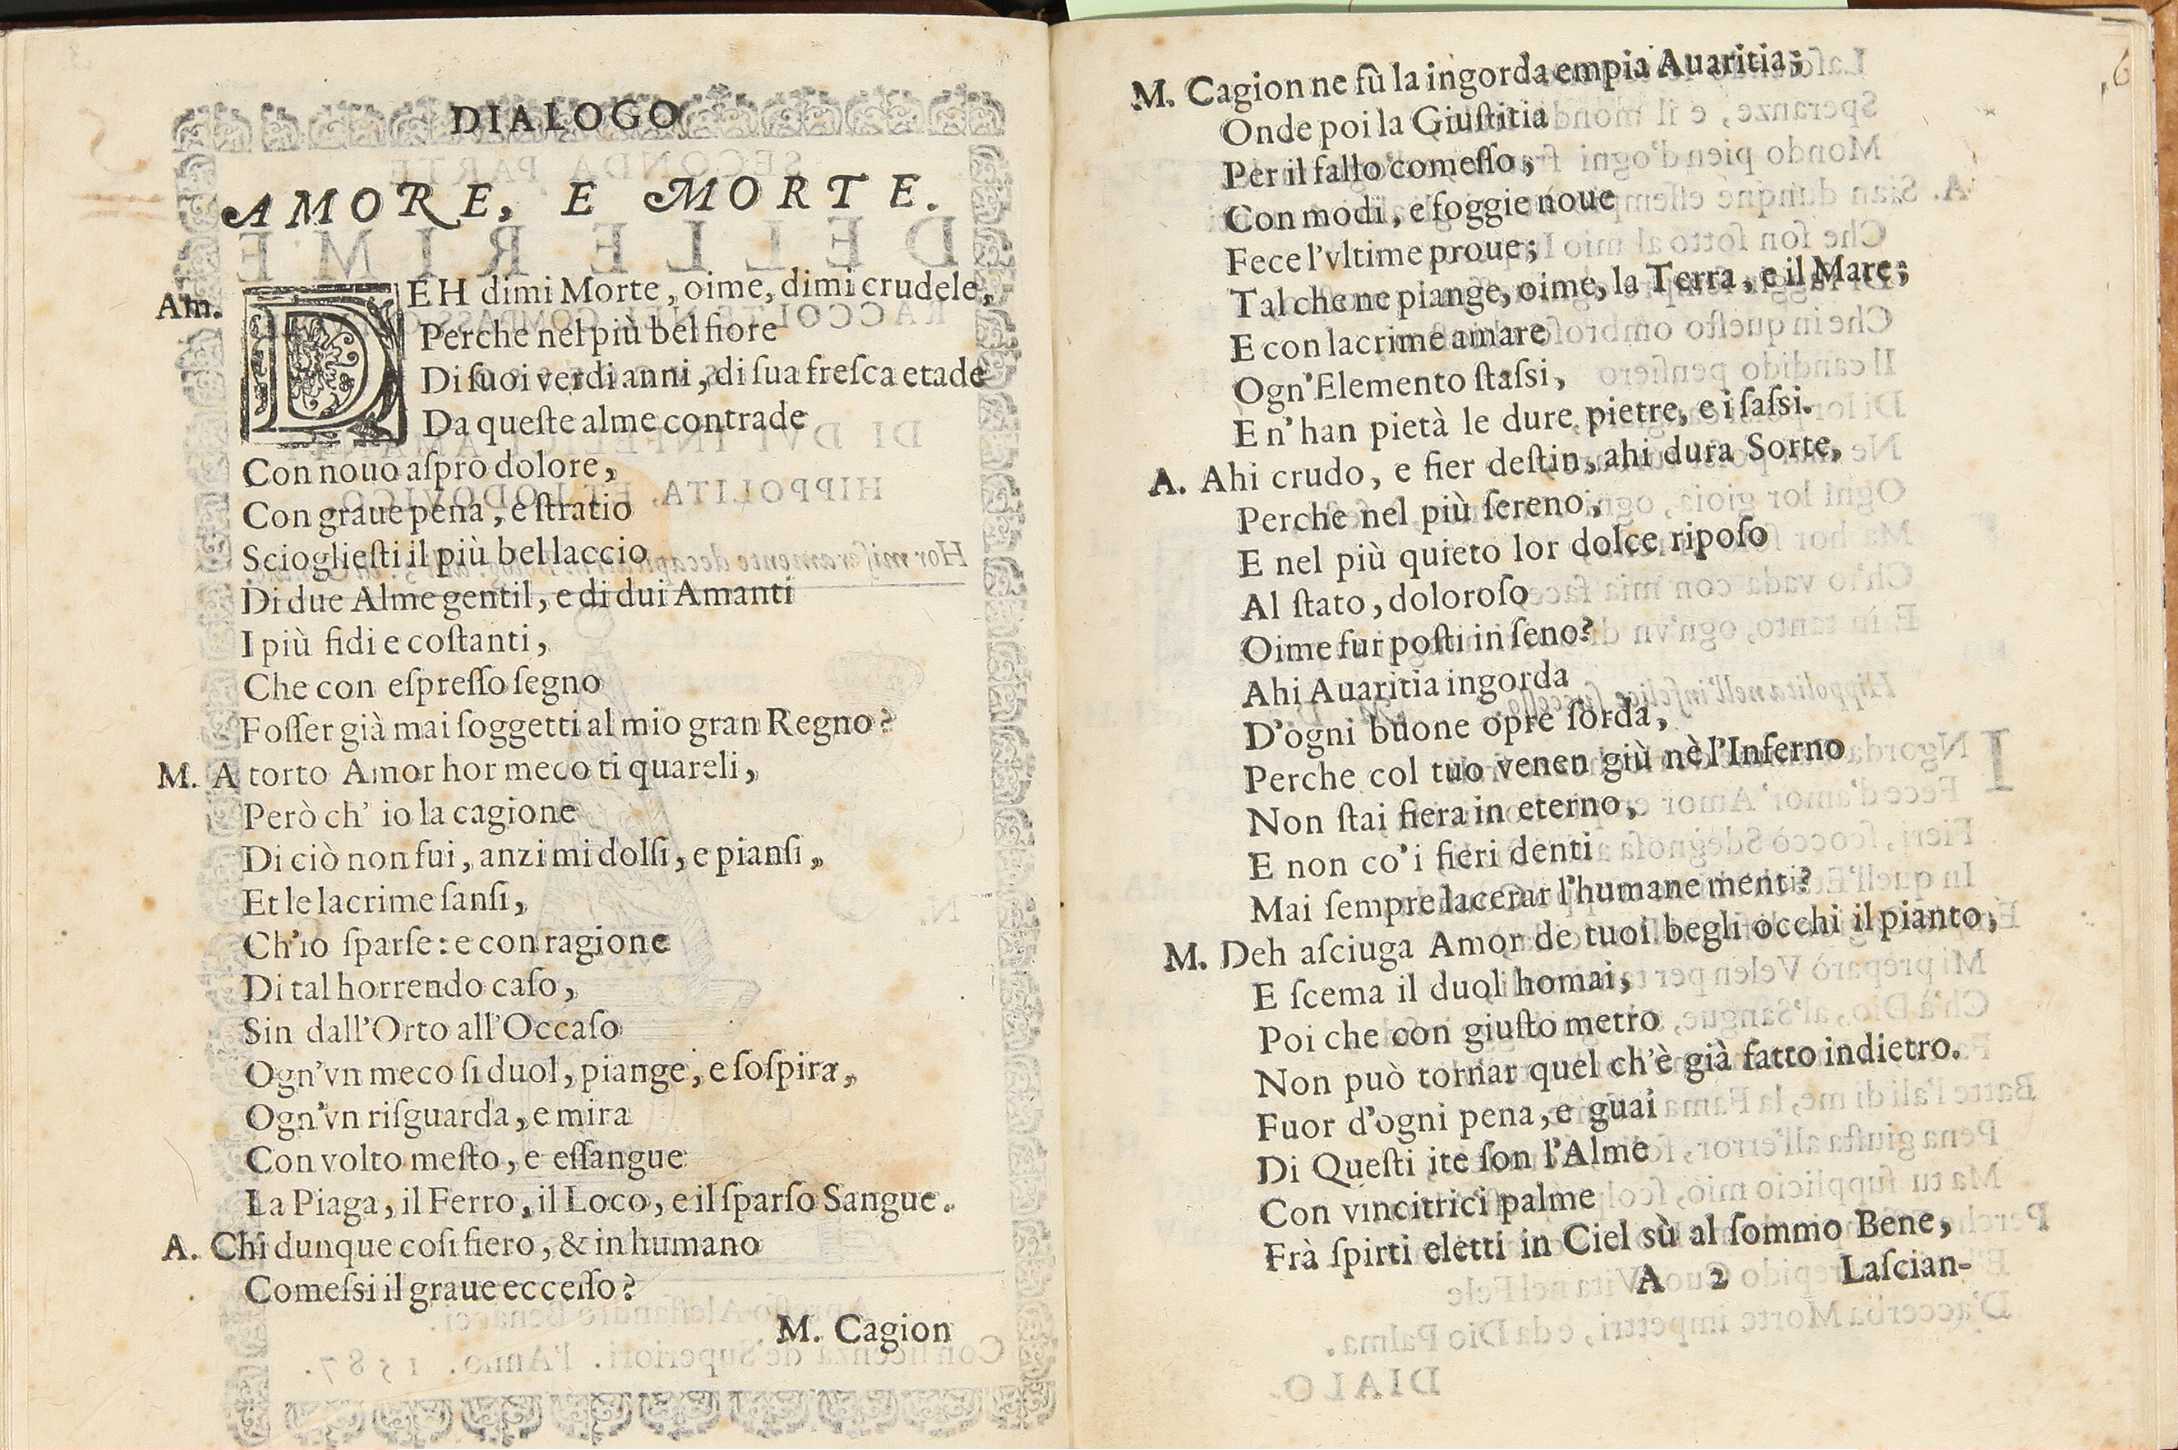 DIALOGO
AMORE, E MORTE.
Am. DEH dimi Morte, oime, dimi crudele,
Perche nel più bel fiore
Di ſuoi verdi anni, di ſua freſca etade
Da queſte alme contrade
Con nouo aſpro dolore,
Con graue pena, e ſtratio
Sciogлieſti il più bel laccio
Di due Alme gentil, e di dui Amanti
I più fidi e coſtanti,
Che con eſpreſſo ſegno
Foſſer già mai ſoggetti al mio gran Regno?
M. A torto Amor hor meco ti quareli,
Però ch' io la cagione
Di ciò non fui, anzi mi dolſi, e pianſi,
Et le lacrime ſanſi,
Ch'io ſparſe: e con ragione
Di tal horrendo caſo,
Sin dall'Orto all'Occaſo
Ogn'vn meco ſi duol, piange, e ſoſpira,
Ogn'vn riſguarda, e mira
Con volto meſto, e eſſangue
La Piaga, il Ferro, il Loco, e il ſparſo Sangue.
A. Chi dunque coſi fiero, & inhumano
Comeſsi il graue ecceſſo?
M. Cagion
M. Cagion ne fù la ingorda empia Auaritia;
Onde poi la Giuſtitia
Per il fallo comeſſo,
Con modi, e foggie noue
Fece l'vltime proue;
Tal che ne piange, oime, la Terra, e il Mare;
E con lacrime amare
Ogn'Elemento ſtaſsi,
E n'han pietà le dure pietre, e i ſaſsi.
A. Ahi crudo, e fier deſtin, ahi dura Sorte,
Perche nel più ſereno,
E nel più quieto lor dolce ripoſo
Al ſtato, doloroſo
Oime fur poſti in ſeno?
Ahi Auaritia ingorda
D'ogni buone opre ſorda,
Perche col tuo venen giù nè l'Inferno
Non ſtai fiera in eterno,
E non co'i fieri denti
Mai ſempre lacerar l'humane menti?
M. Deh aſciuga Amor de tuoi begli occhi il pianto,
E ſcema il duol homai,
Poi che con giuſto metro
Non può tornar quel ch'è già fatto indietro.
Fuor d'ogni pena, e guai
Di Queſti ite ſon l'Alme
Con vincitrici palme
Frà ſpirti eletti in Ciel sù al ſommo Bene,
A 2 Laſcian-